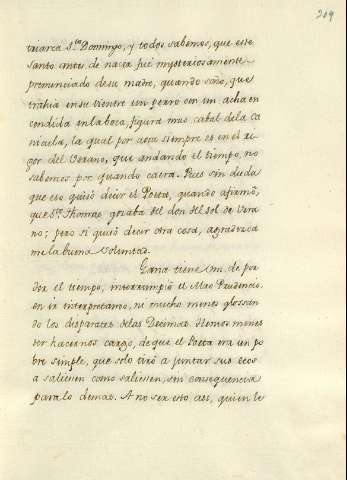 209
triarca S.to Domingo, y todos sabemos, que este
Santo antes de nacer fuè mysteriosamente
prenunciado de su madre, quando soñò, que
trahia en su vientre un perro con un acha en
cendida en la boca, figura mas cabal de la Ca
nicula, la qual por aora siempre es en el ri
gor del Verano, que andando el tiempo, no
sabemos por quando caerà. Pues sin duda
que eso quisò decir el Poeta, quando afirmò,
que S.to Thomas gozaba del don del sol de Vera
no; pero si quisò decir otra cosa, agradezca
me la buena voluntad.
Gana tiene Vm. de per
der el tiempo, interrumpiò el Mro Prudencio,
en ir interpretando, ni mucho menos glossan
do los disparates de las Decimas. Hemos menes
ter hacernos cargo, de que el Poeta era un po
bre simple, que solo tirò a juntar sus ecos
a saliesen como saliesen, sin consequencia
para lo demas. A no ser esto asi, quien le